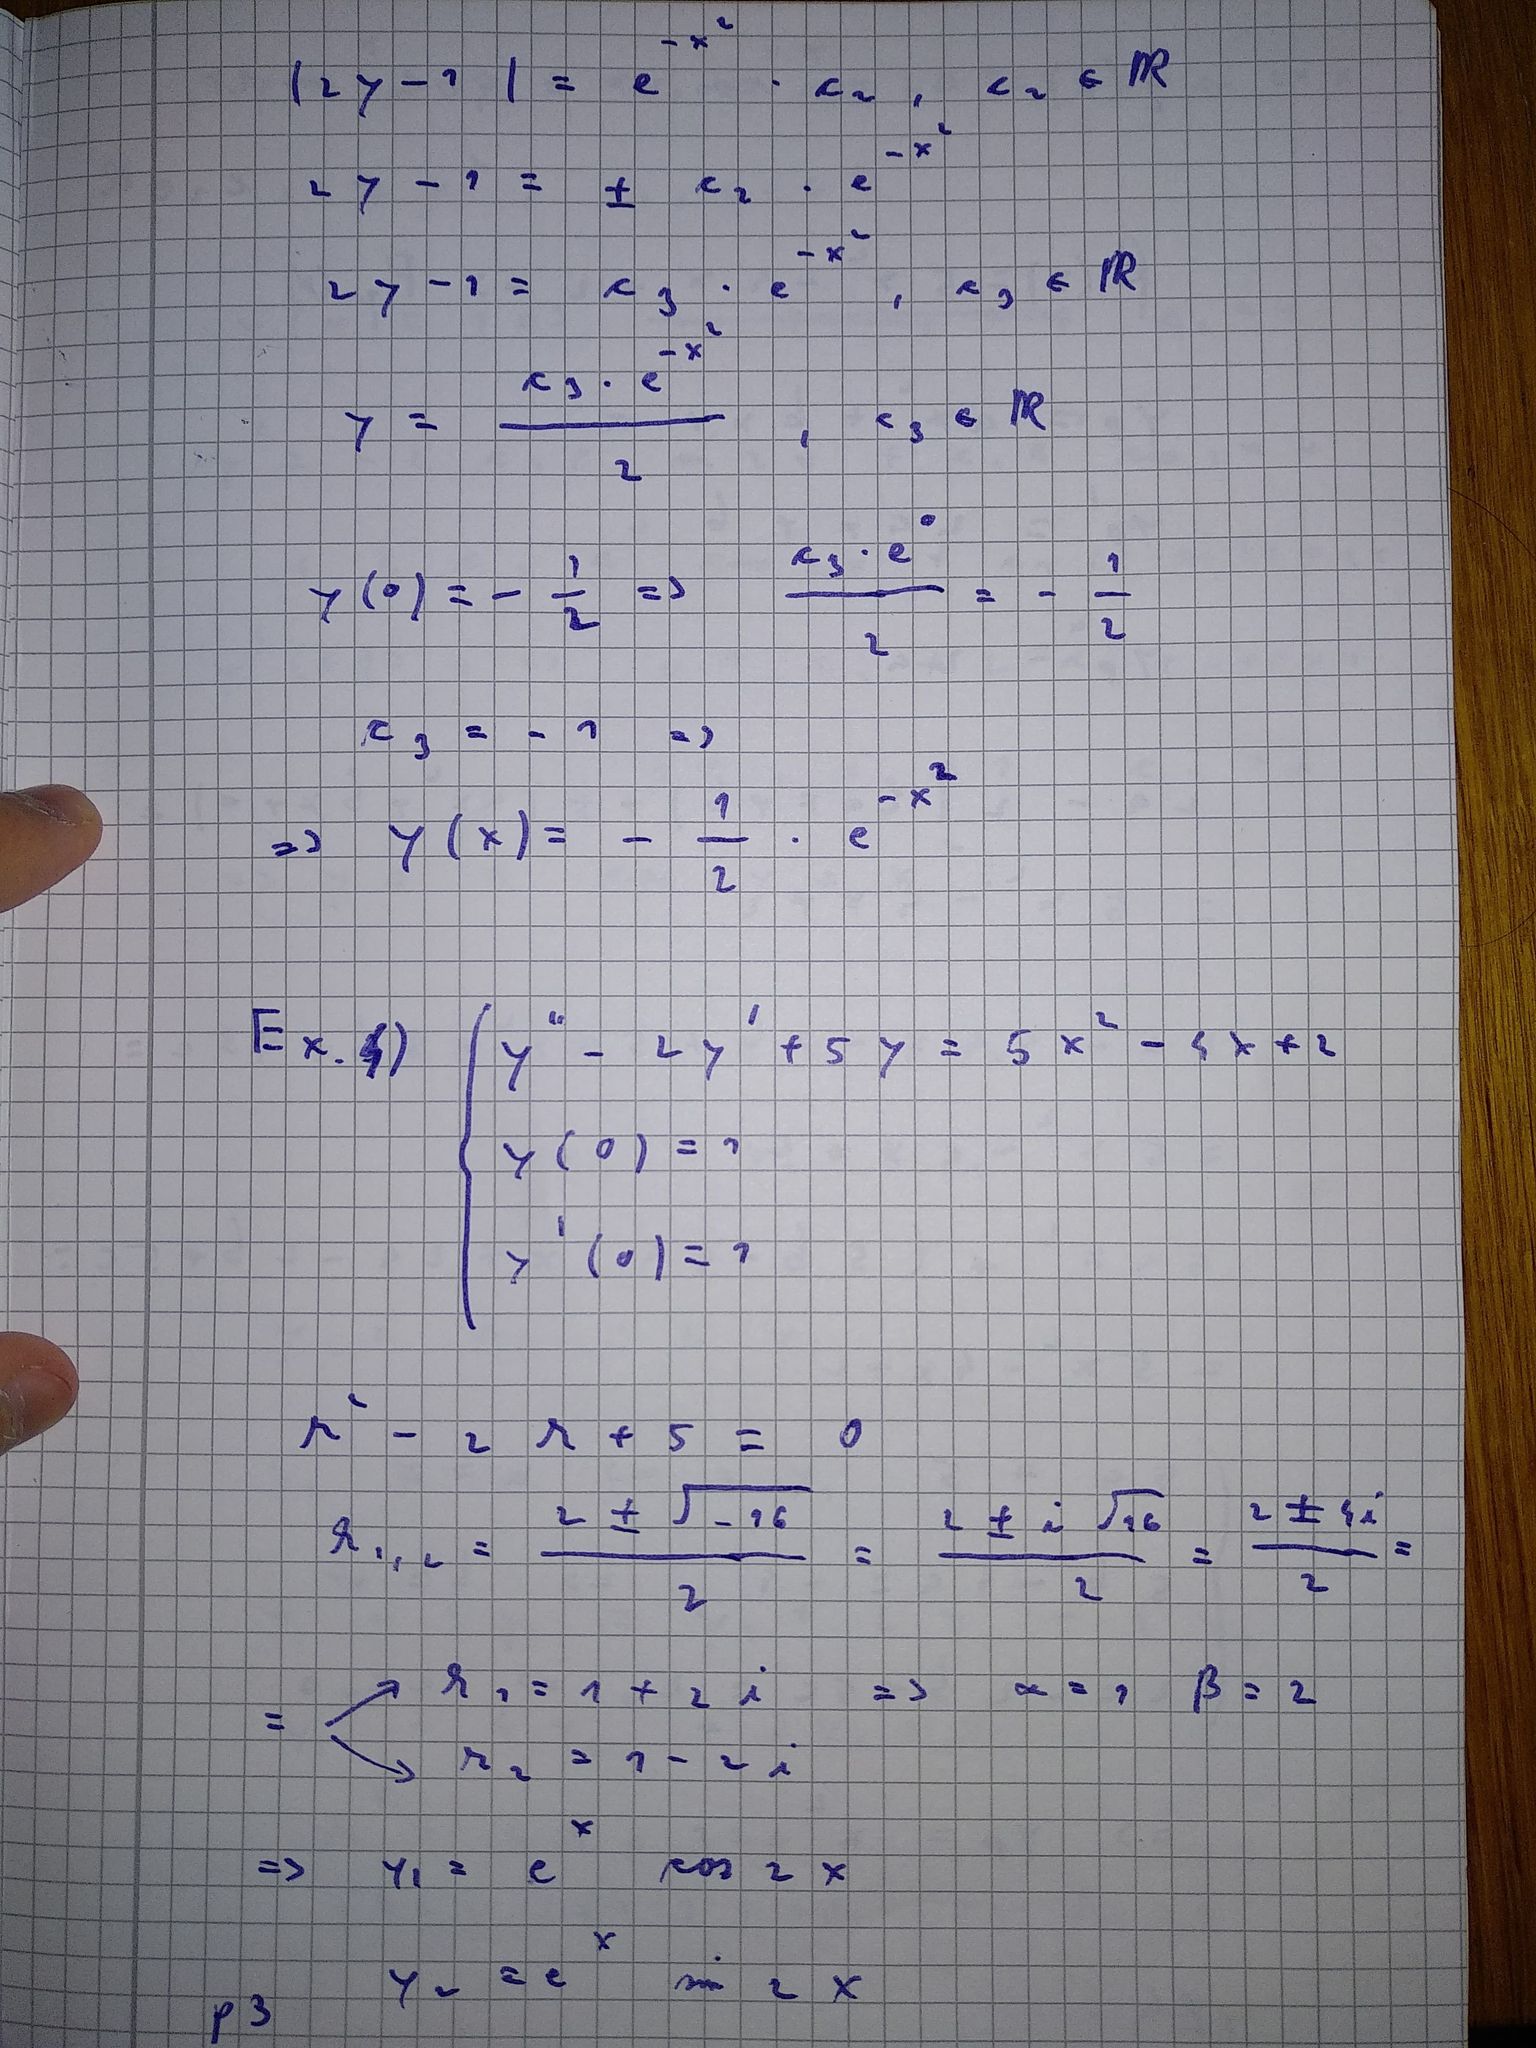 |2y-1| = e^{-x^2} · c_2, c_2 ∈ ℝ
2y-1 = ± c_2 · e^{-x^2}
2y-1 = c_3 · e^{-x^2}, c_3 ∈ ℝ
y = \frac{c_3 · e^{-x^2}}{2}, c_3 ∈ ℝ
y(0) = -\frac{1}{2} => \frac{c_3 · e^0}{2} = -\frac{1}{2}
c_3 = -1 =>
=> y(x) = -\frac{1}{2} · e^{-x^2}
Ex. 4) { y'' - 2y' + 5y = 5x^2 - 4x + 2
y(0) = 1
y'(0) = 1
r^2 - 2r + 5 = 0
r_{1,2} = \frac{2 ± √{-16}}{2} = \frac{2 ± i√{16}}{2} = \frac{2 ± 4i}{2} =
= r_1 = 1 + 2i => α = 1 β = 2
r_2 = 1 - 2i
=> y_1 = e^x cos 2x
y_2 = e^x sin 2x
p 3